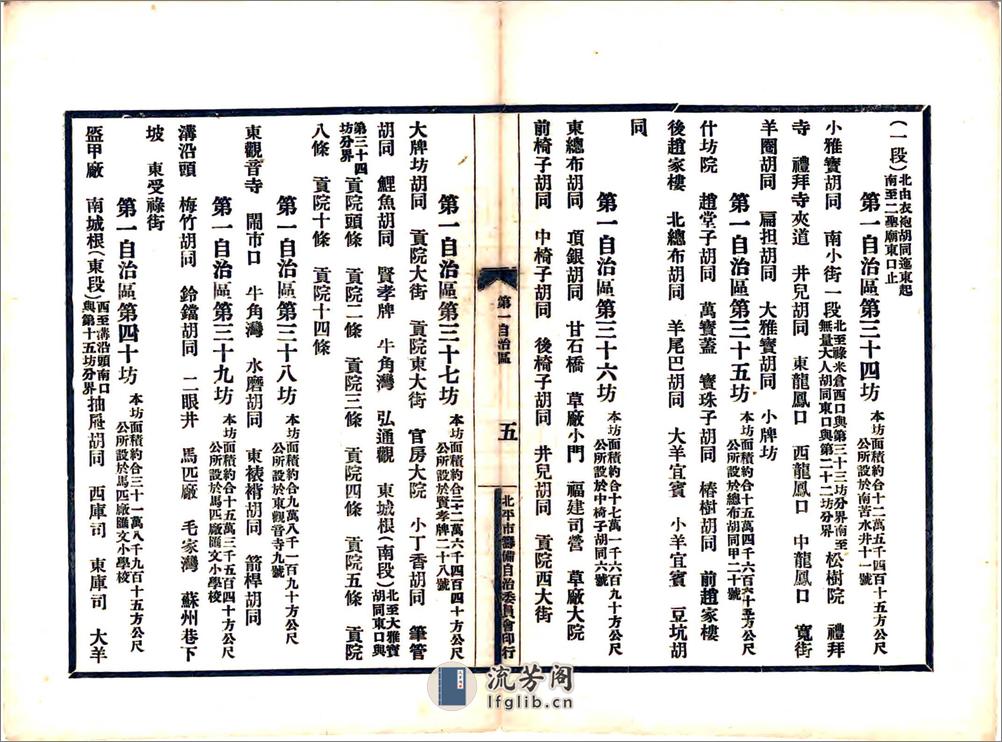 (一段)北由衣袍胡同迤東起南至二聖廟東口止
第一自治區第三十四坊 本坊面積約合十二萬五千四百十五方公尺公所設於南苦水井十一號
小雅寶胡同 南小街一段北至祿米倉西口與第三十三坊分界南至無量大人胡同東口與第二十二坊分界松樹院 禮拜
寺 禮拜寺夾道 井兒胡同 東龍鳳口 西龍鳳口 中龍鳳口 寬街
羊圈胡同 扁担胡同 大雅寶胡同 小牌坊
第一自治區第三十五坊 本坊面積約合十五萬四千六百六十五方公尺公所設於總布胡同甲二十號
什坊院 趙堂子胡同 萬寶蓋 寶珠子胡同 椿樹胡同 前趙家樓
後趙家樓 北總布胡同 羊尾巴胡同 大羊宜賓 小羊宜賓 豆坑胡
同
第一自治區第三十六坊 本坊面積約合十七萬一千六百九十方公尺公所設於中椅子胡同六號
東總布胡同 項銀胡同 甘石橋 草廠小門 福建司營 草廠大院
前椅子胡同 中椅子胡同 後椅子胡同 井兒胡同 貢院西大街
第一自治區
五
北平市籌備自治委員會印行
第一自治區第三十七坊 本坊面積約合二十二萬六千四百四十方公尺公所設於賢孝牌二十八號
大牌坊胡同 貢院大街 貢院東大街 官房大院 小丁香胡同 筆管
胡同 鯉魚胡同 賢孝牌 牛角灣 弘通觀 東城根(南段)北至大雅寶胡同東口與
第三十四坊分界 貢院頭條 貢院二條 貢院三條 貢院四條 貢院五條 貢院
八條 貢院十條 貢院十四條
第一自治區第三十八坊 本坊面積約合九萬八千一百九十方公尺公所設於東觀音寺九號
東觀音寺 鬧市口 牛角灣 水磨胡同 東裱褙胡同 箭桿胡同
第一自治區第三十九坊 本坊面積約合十五萬三千五百四十方公尺公所設於馬匹廠匯文小學校
溝沿頭 梅竹胡同 鈴鐺胡同 二眼井 馬匹廠 毛家灣 蘇州巷下
坡 東受祿街
第一自治區第四十坊 本坊面積約合三十一萬八千九百十五方公尺公所設於馬匹廠匯文小學校
盔甲廠 南城根(東段)西至溝沿頭南口與第十五坊分界抽屜胡同 西庫司 東庫司 大羊
流芳阁
lfglib.cn